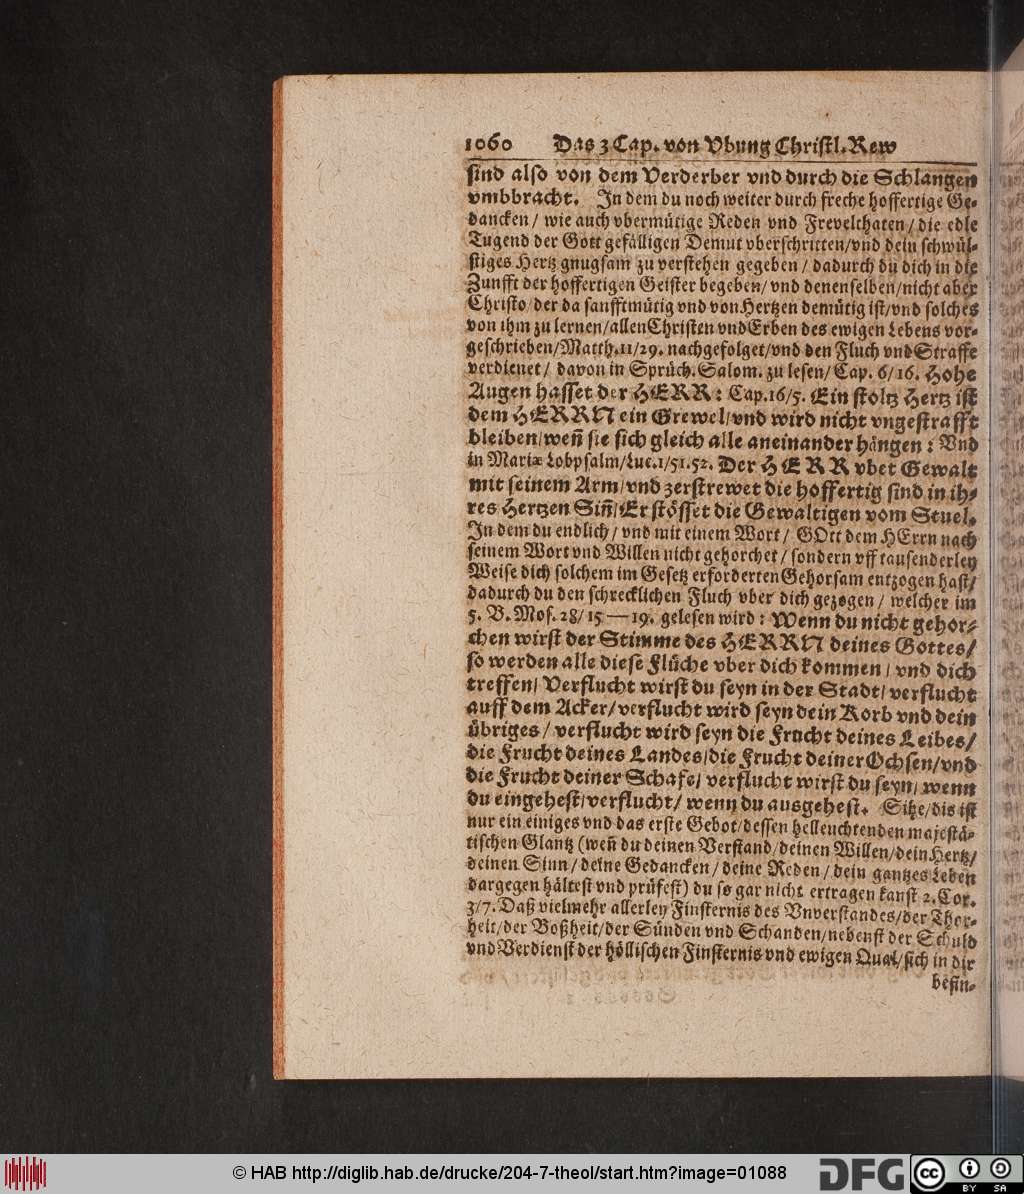 1060 Das 3 Cap. von Vbung Christl. Rew
sind also von dem Verderber vnd durch die Schlangen
vmbbracht. In dem du noch weiter durch freche hoffertige Ge-
dancken / wie auch vbermütige Reden vnd Frevelthaten / die edle
Tugend der Gott gefälligen Demut vberschritten/vnd dein schwül-
stiges Hertz gnugsam zu verstehen gegeben / dadurch du dich in die
Zunfft der hoffertigen Geister begeben/ vnd denenselben/nicht aber
Christo/der da sanfftmütig vnd von Hertzen demütig ist/vnd solches
von ihm zu lernen/allen Christen vnd Erben des ewigen Lebens vor-
geschrieben/Matth.11/29. nachgefolget/vnd den Fluch vnd Straffe
verdienet / davon in Sprüch. Salom. zu lesen/ Cap. 6/16. Hohe
Augen hasset der HERR : Cap.16/5. Ein stoltz Hertz ist
dem HERRN ein Grewel/vnd wird nicht vngestrafft
bleiben/weñ sie sich gleich alle aneinander hängen : Vnd
in Mariæ Lobpsalm/Luc.1/51.52. Der HERR vbet Gewalt
mit seinem Arm/vnd zerstrewet die hoffertig sind in ih-
res Hertzen Siñ/Er stösset die Gewaltigen vom Stuel.
In dem du endlich/ vnd mit einem Wort / GOtt dem HErrn nach
seinem Wort vnd Willen nicht gehorchet / sondern vff tausenderley
Weise dich solchem im Gesetz erforderten Gehorsam entzogen hast/
dadurch du den schrecklichen Fluch vber dich gezogen / welcher im
5. B. Mos. 28/ 15 — 19. gelesen wird : Wenn du nicht gehor-
chen wirst der Stimme des HERRN deines Gottes/
so werden alle diese Flüche vber dich kommen / vnd dich
treffen/ Verflucht wirst du seyn in der Stadt/ verflucht
auff dem Acker/ verflucht wird seyn dein Korb vnd dein
übriges / verflucht wird seyn die Frucht deines Leibes/
die Frucht deines Landes/die Frucht deiner Ochsen/vnd
die Frucht deiner Schafe/ verflucht wirst du seyn/ wenn
du eingehest/verflucht/ wenn du ausgehest. Sihe/dis ist
nur ein einiges vnd das erste Gebot/dessen helleuchtenden majestä-
tischen Glantz (weñ du deinen Verstand/deinen Willen/dein Hertz/
deinen Sinn / deine Gedancken / deine Reden / dein gantzes Leben
dargegen hältest vnd prüfest) du so gar nicht ertragen kanst 2. Cor.
3/7. Daß vielmehr allerley Finsternis des Vnverstandes/der Thor-
heit/der Boßheit/der Sünden vnd Schanden/nebenst der Schuld
vnd Verdienst der höllischen Finsternis vnd ewigen Qual/sich in dir
befin-
© HAB http://diglib.hab.de/drucke/204-7-theol/start.htm?image=01088
DFG
cc BY SA